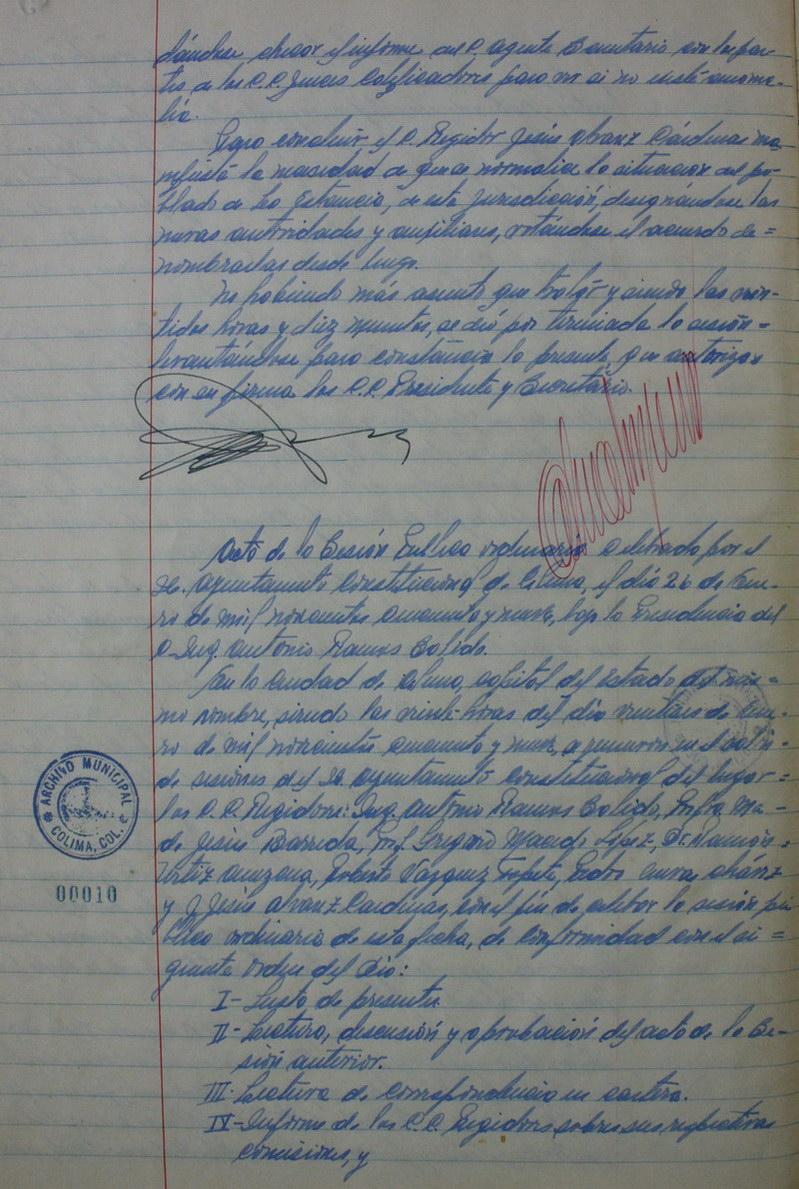 Sánchez, checar el informe del C. Agente Sanitario con los par-
tes de los C.C. Jueces Calificadores para ver si no existe anoma-
lía.
Para concluir, el C. Regidor Jesús Alvarez Cárdenas ma-
nifestó la necesidad de que se normalice la situación del po-
blado de La Estancia, de esta jurisdicción, designándose las
nuevas autoridades y auxiliares, votándose el acuerdo de=
nombrarlas desde luego.
No habiendo más asunto que tratar y siendo las vein-
tidos horas y diez minutos, se dió por terminada la sesión=
levantándose para constancia la presente, que autorizan
con su firma los C.C. Presidente y Secretario.
Acta de la Sesión Pública ordinaria celebrada por el
H. Ayuntamiento Constitucional de Colima, el día 26 de Ene-
ro de mil novecientos cincuenta y nueve, bajo la Presidencia del
C. Ing. Antonio Ramos Salido.
En la Ciudad de Colima, capital del Estado del mis-
mo nombre, siendo las veinte horas del día veintiseis de Ene-
ro de mil novecientos cincuenta y nueve, se reunieron en el salón
de sesiones del H. Ayuntamiento Constitucional del lugar=
los C.C. Regidores: Ing. Antonio Ramos Salido, Profra. Ma-
de Jesús Barreda, Prof. Gregorio Macedo López, Dr. Ramón=
Ortiz Roberto Vázquez Topete, Pedro
y J. Jesús Alvarez Cárdenas, con el fin de celebrar la sesión pú-
blica ordinaria de esta fecha, de conformidad con el si=
guiente orden del Día:
I- Lista de presentes.
II- Lectura, discusión y aprobación del acta de la Se-
sión anterior.
III- Lectura de correspondencia en cartera.
IV- Informe de los C.C. Regidores sobre sus respectivas
comisiones, y
ARCHIVO MUNICIPAL
COLIMA, COL.
00010